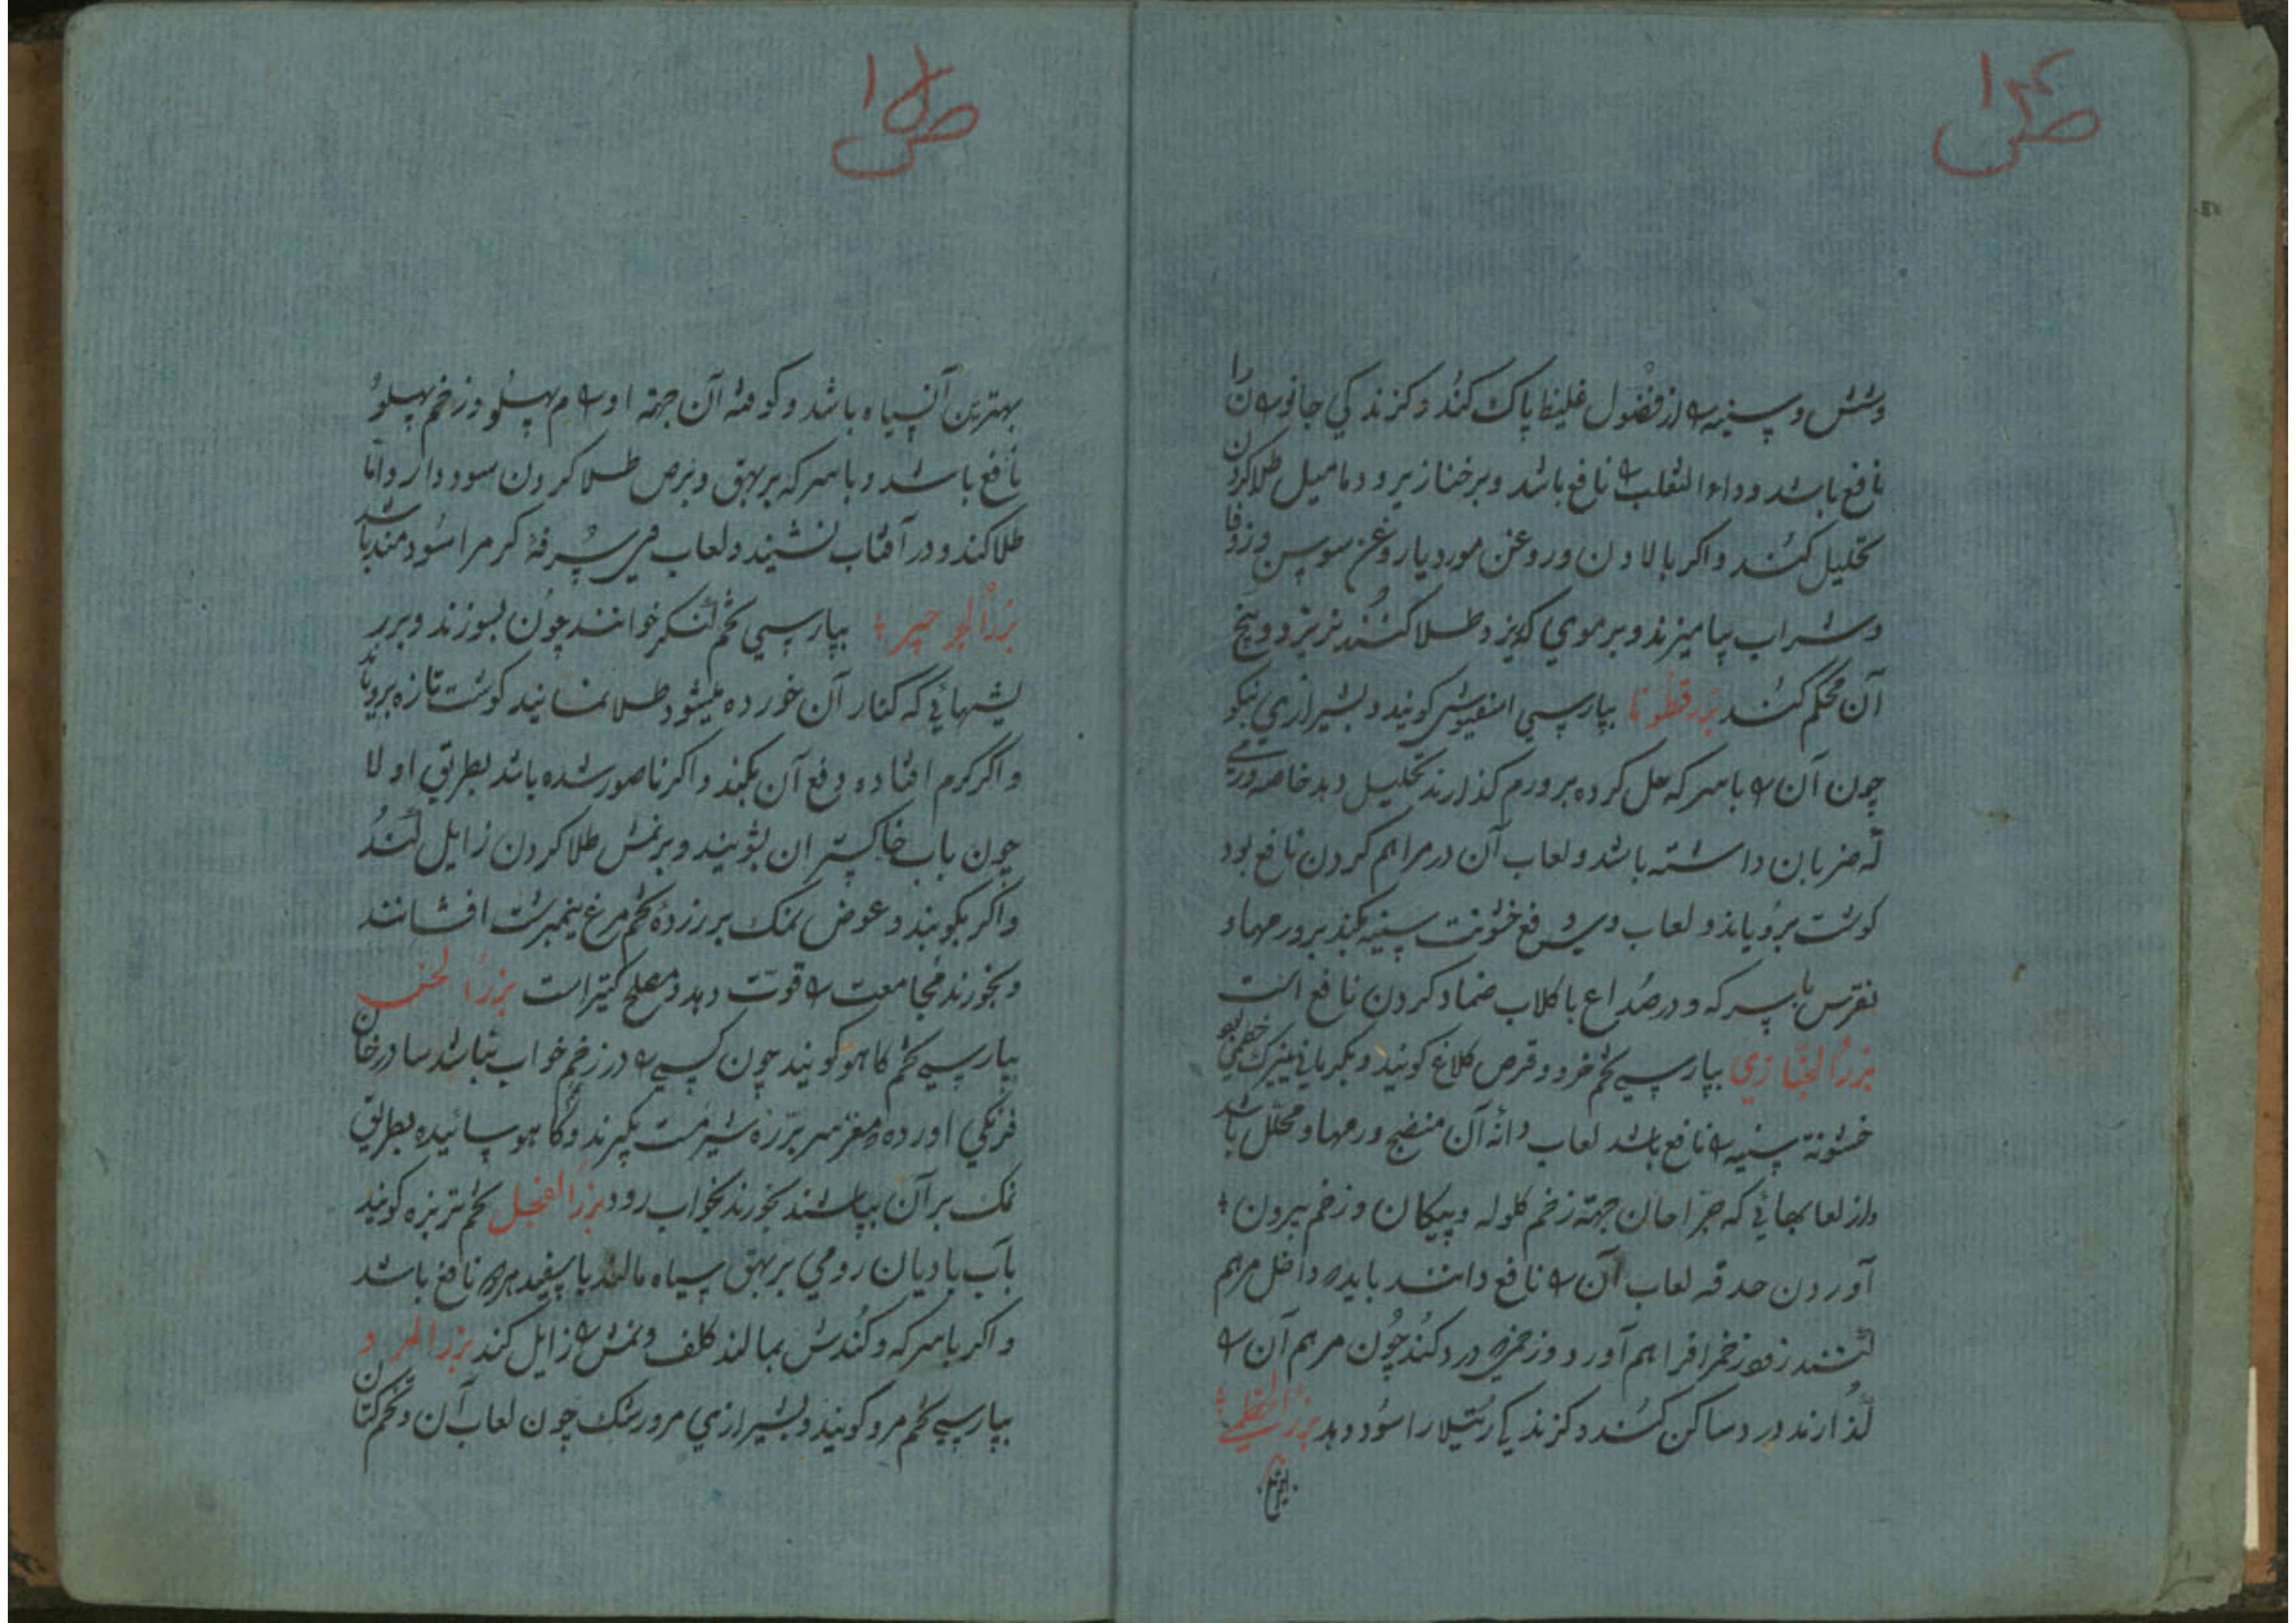 ص ۱۴
وشش و سینه را از فضول غلیظ پاک کند و کزندکی جانوران را
نافع باشد و داء الثعلب را نافع باشد و بر خنازیر و دمامیل طلا کردن
تحلیل کند و اکر با لادن و روغن مورد یا روغن سوسن و زوفا
و شراب بیامیزند و بر موی که بریزد طلا کنند نریزد و بیخ
آن محکم کند بزر قطونا بپارسی اسفیوش کویند و بشیرازی بنکو
چون آن را با سرکه حل کرده بر ورم کذارند تحلیل دهد خاصه ورمی
که ضربان داشته باشد و لعاب آن در مراهم کردن نافع بود
کوشت برویاند و لعاب وی دفع خشونت سینه بکند بر ورمها و
نقرس با سرکه و در صداع با کلاب ضماد کردن نافع است
بزر الخبازی بپارسی تخم خرو و قرص کلاغ کویند و بکرمانی پنیرک خطمی بود
خشونة سینه را نافع باشد لعاب دانهٔ آن منضج ورمها و محلل باشد
و از لعابهائی که جراحان جهة زخم کلوله و پیکان و زخم بیرون
آوردن حدقه لعاب آن را نافع دانند باید داخل مرهم
کنند زود زخم را فراهم آورد و زخمی درد کند چون مرهم آن را
کذارند درد ساکن کند و کزندکی رتیلا را سود دهد بزر الخطمی
بهترین
ص ۱۵
بهترین آن سیاه باشد و کوفتهٔ آن جهة اورام پهلو و زخم پهلو
نافع باشد و با سرکه بر بهق و برص طلا کردن سود دارد اما
طلا کند و در آفتاب نشیند و لعاب وی سرفهٔ کرم را سودمند باشد
بزر الجرجیر بپارسی تخم خوانند چون بسوزند و بر
ریشهائی که کنار آن خورده میشود طلا نمانید کوشت تازه برویاند
و اکر کرم افتاده دفع آن بکند و اکر ناصور شده باشد بطریق اولا
چون باب خاکستر ان بشویند و بر نمش طلا کردن زایل کند
و اکر بکوبند و عوض نمک بر زردهٔ تخم مرغ نیمبرشت افشانند
و بخورند مجامعت را قوت دهد و مصلح کتیراست بزر الخس
بپارسی تخم کاهو کویند چون کسی را در زخم خواب نباشد سادرخان
فرنکی اورده و مغز سر بره شیرمست بکیرند و کاهو سائیده بطریق
نمک بر آن بپاشند بخورند بخواب رود بزر الفجل تخم تربزه کویند
بآب بادیان رومی بر بهق سیاه مالند یا سفید نافع باشد
و اکر با سرکه و کندش بمالند کلف و نمش را زایل کند بزر المرو
بپارسی تخم مرو کویند و بشیرازی مرورشک چون لعاب آن و تخم کتان